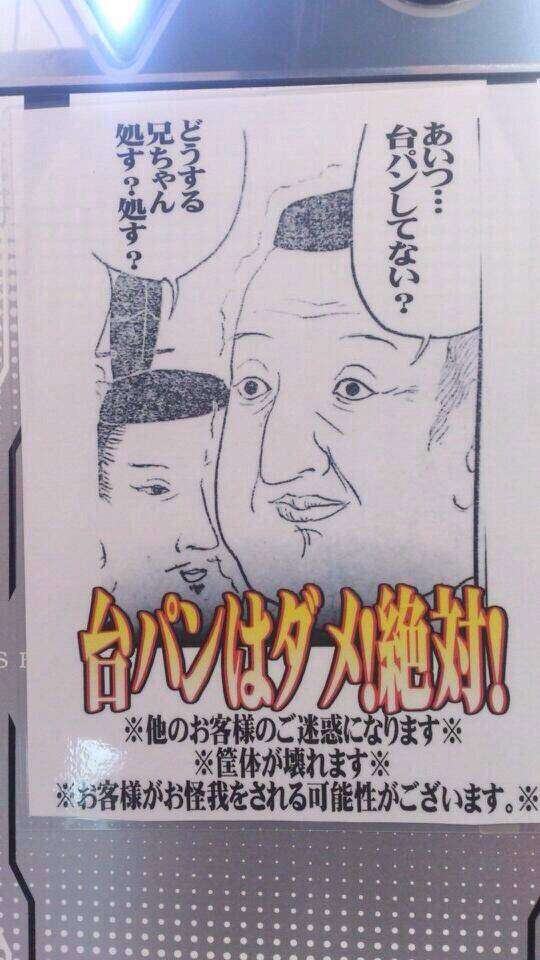 あいつ…
台パンしてない？
どうする
兄ちゃん
処す？処す？
台パンはダメ!絶対!
※他のお客様のご迷惑になります※
※筐体が壊れます※
※お客様がお怪我をされる可能性がございます。※